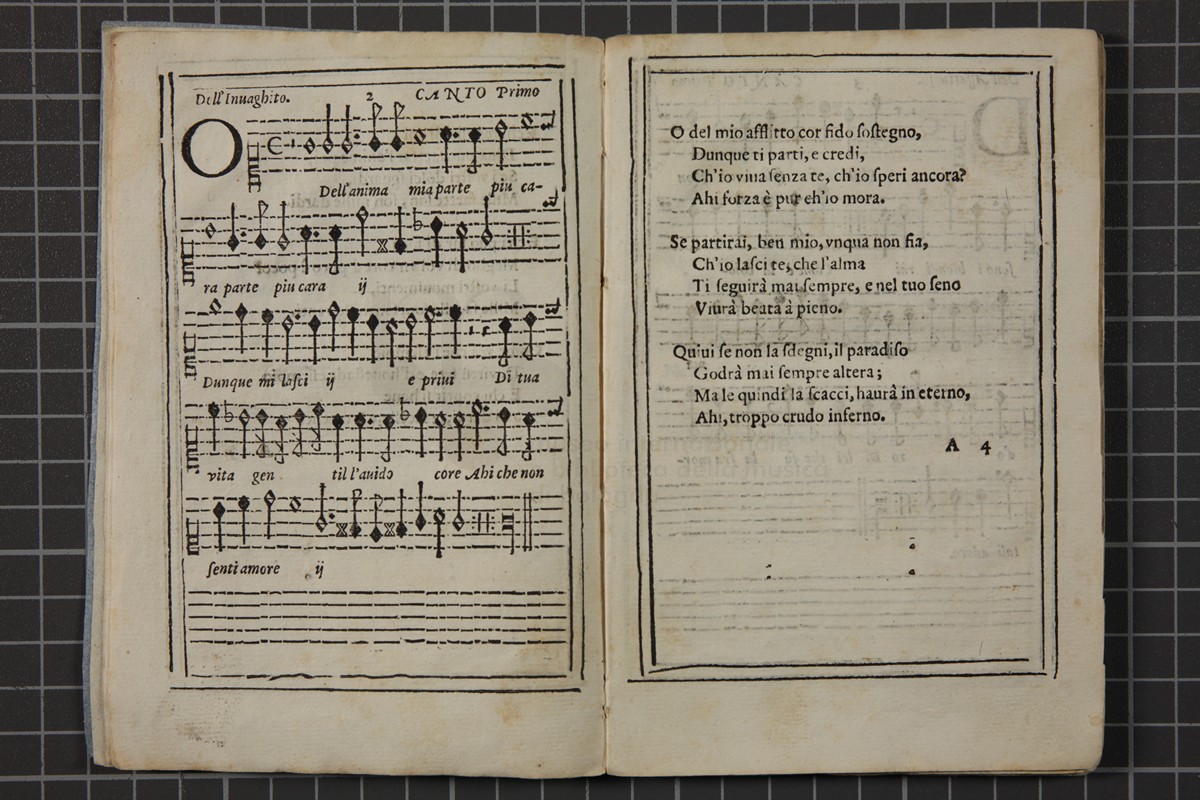 Dell'Inuaghito. 2 CANTO Primo
O
Dell'anima mia parte piu ca-
ra parte piu cara ij
Dunque mi lasci ij e priui Di tua
vita gen til l'auido core Ahi che non
senti amore ij
O del mio afflitto cor fido sostegno,
Dunque ti parti, e credi,
Ch'io viua senza te, ch'io speri ancora?
Ahi forza è pur ch'io mora.
Se partirai, ben mio, vnqua non fia,
Ch'io lasci te, che l'alma
Ti seguirà mai sempre, e nel tuo seno
Viurà beata à pieno.
Quiui se non la sdegni, il paradiso
Godrà mai sempre altera;
Ma le quindi la scacci, haurà in eterno,
Ahi, troppo crudo inferno.
A 4